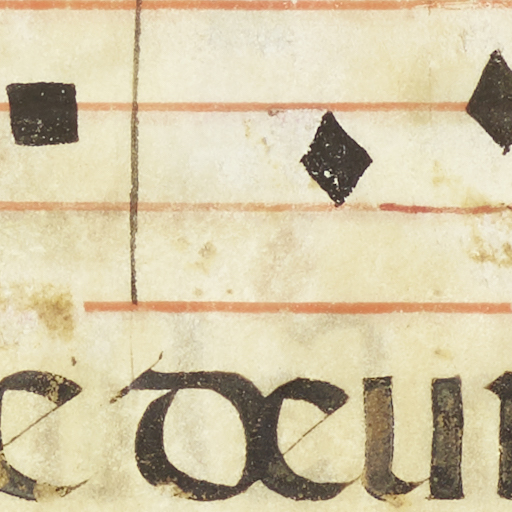 e deu